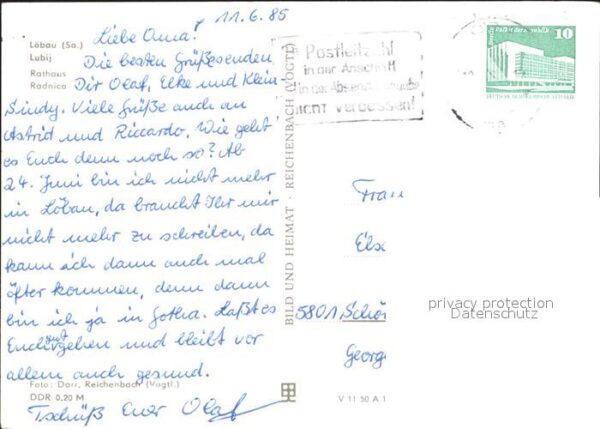 11.6.85
Löbau (Sa.)
Lubij
Rathaus
Radnica
Liebe Oma!
Die besten Grüßesenden
Dir Olaf, Elke und Klein
Sindy. Viele Grüße auch an
Astrid und Riccardo. Wie geht
es Euch denn noch so? Ab
24. Juni bin ich nicht mehr
in Löbau, da braucht Ihr mir
nicht mehr zu schreiben, da
kann ich dann auch mal
öfter kommen, denn dann
bin ich ja in Gotha. Laßt es
Euch gut ergehen und bleibt vor
allem auch gesund.
Foto: Darr, Reichenbach (Vogtl.)
DDR 0,20 M
Tschüß Euer Olaf
BILD UND HEIMAT · REICHENBACH (VOGTL)
V 11 50 A 1
Postleitzahl
in der Anschrift
in der Absenderangabe
NICHT vergessen!
10
Frau
Else
5801 Schön
Georg
privacy protection
Datenschutz